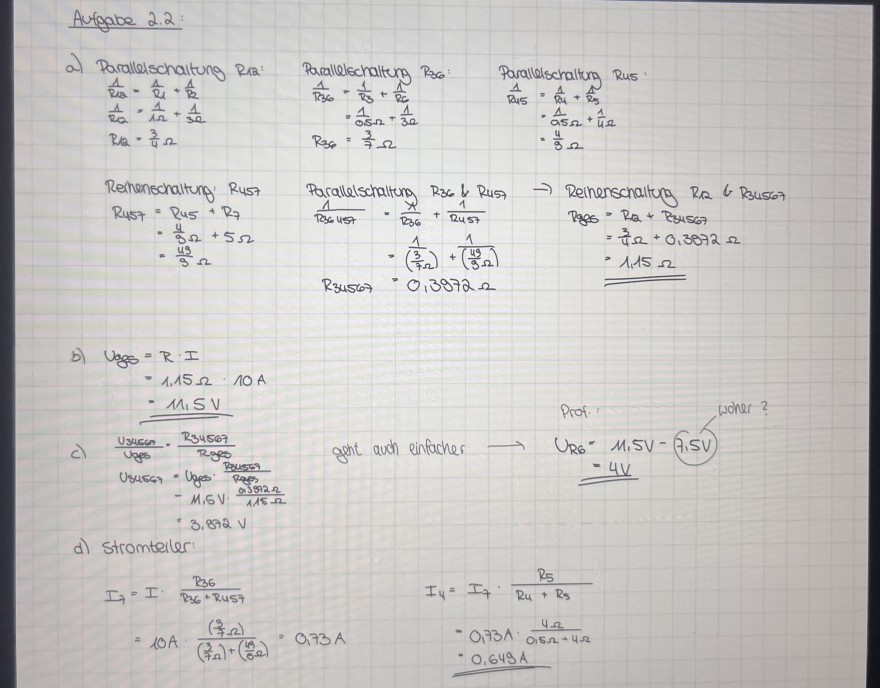 Aufgabe 2.2:
a) Parallelschaltung R12:
1/R12 = 1/R1 + 1/R2
1/R12 = 1/1Ω + 1/3Ω
R12 = 3/4 Ω
Parallelschaltung R36:
1/R36 = 1/R3 + 1/R6
= 1/0,5Ω + 1/3Ω
R36 = 3/7 Ω
Parallelschaltung R45:
1/R45 = 1/R4 + 1/R5
= 1/0,5Ω + 1/4Ω
= 4/9 Ω
Reihenschaltung: R457
R457 = R45 + R7
= 4/9 Ω + 5Ω
= 49/9 Ω
Parallelschaltung R36 & R457
1/R36457 = 1/R36 + 1/R457
= 1/(3/7Ω) + 1/(49/9Ω)
R34567 = 0,3972 Ω
→ Reihenschaltung R12 & R34567
Rges = R12 + R34567
= 3/4 Ω + 0,3972 Ω
= 1,15 Ω
b) Uges = R · I
= 1,15Ω · 10A
= 11,5V
c) U34567/Uges = R34567/Rges
U34567 = Uges · R34567/Rges
= 11,5V · 0,3972Ω/1,15Ω
= 3,972 V
geht auch einfacher →
Prof.:
woher?
UR6 = 11,5V - 7,5V
= 4V
d) Stromteiler:
I7 = I · R36/R36+R457
= 10A · (3/7Ω)/(3/7Ω)+(49/9Ω) = 0,73A
I4 = I7 · R5/R4 + R5
= 0,73A · 4Ω/0,5Ω+4Ω
= 0,649A